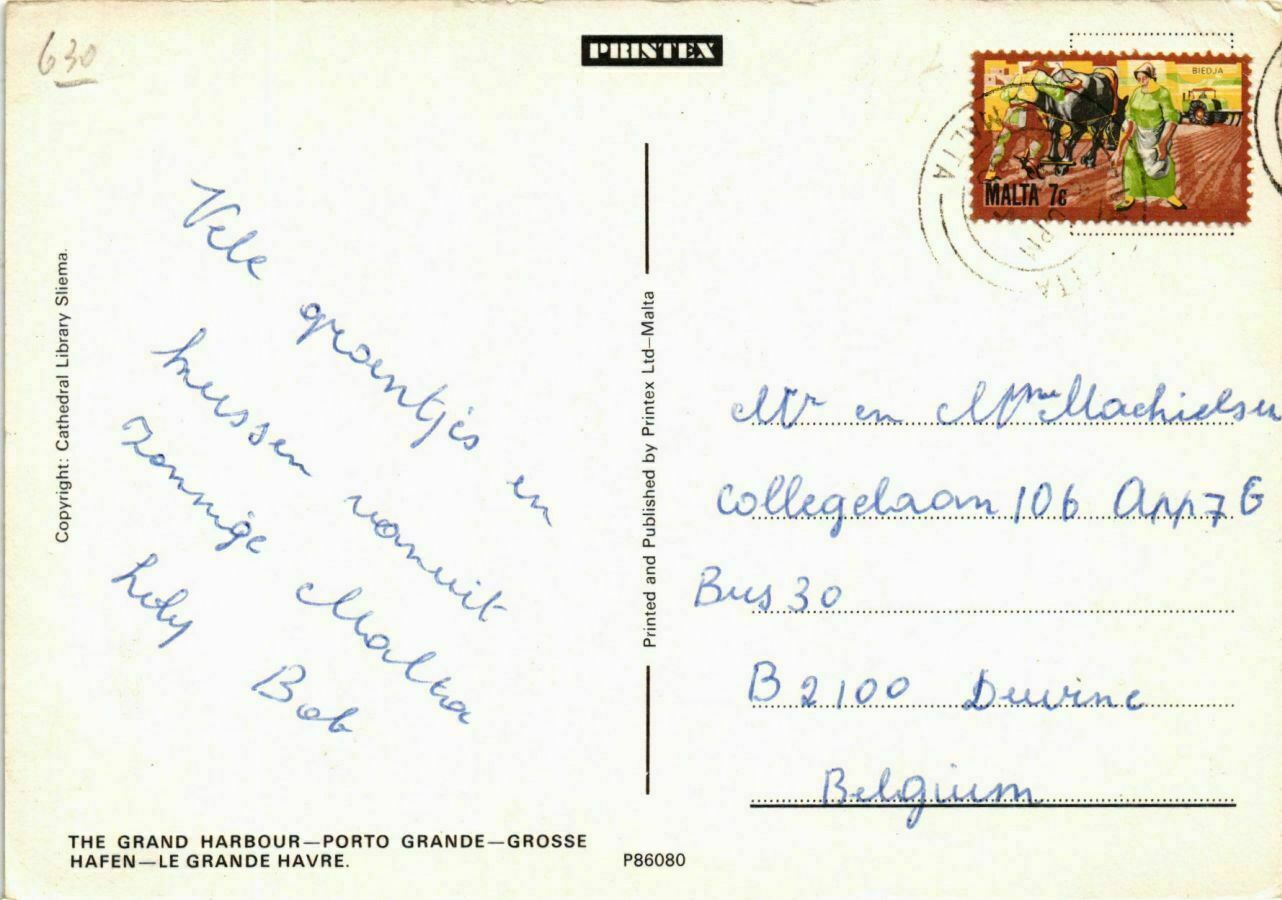 630
PRINTEX
BIEDJA
MALTA 7c
MALTA
PM
Vele groentjes en
kussen vanuit
zonnige Malta
Lily Bob
Mr en Mme Machielsen
Collegelaan 106 App 7 G
Bus 30
B 2100 Deurne
Belgium
Copyright: Cathedral Library Sliema.
Printed and Published by Printex Ltd—Malta
THE GRAND HARBOUR—PORTO GRANDE—GROSSE
HAFEN—LE GRANDE HAVRE.
P86080